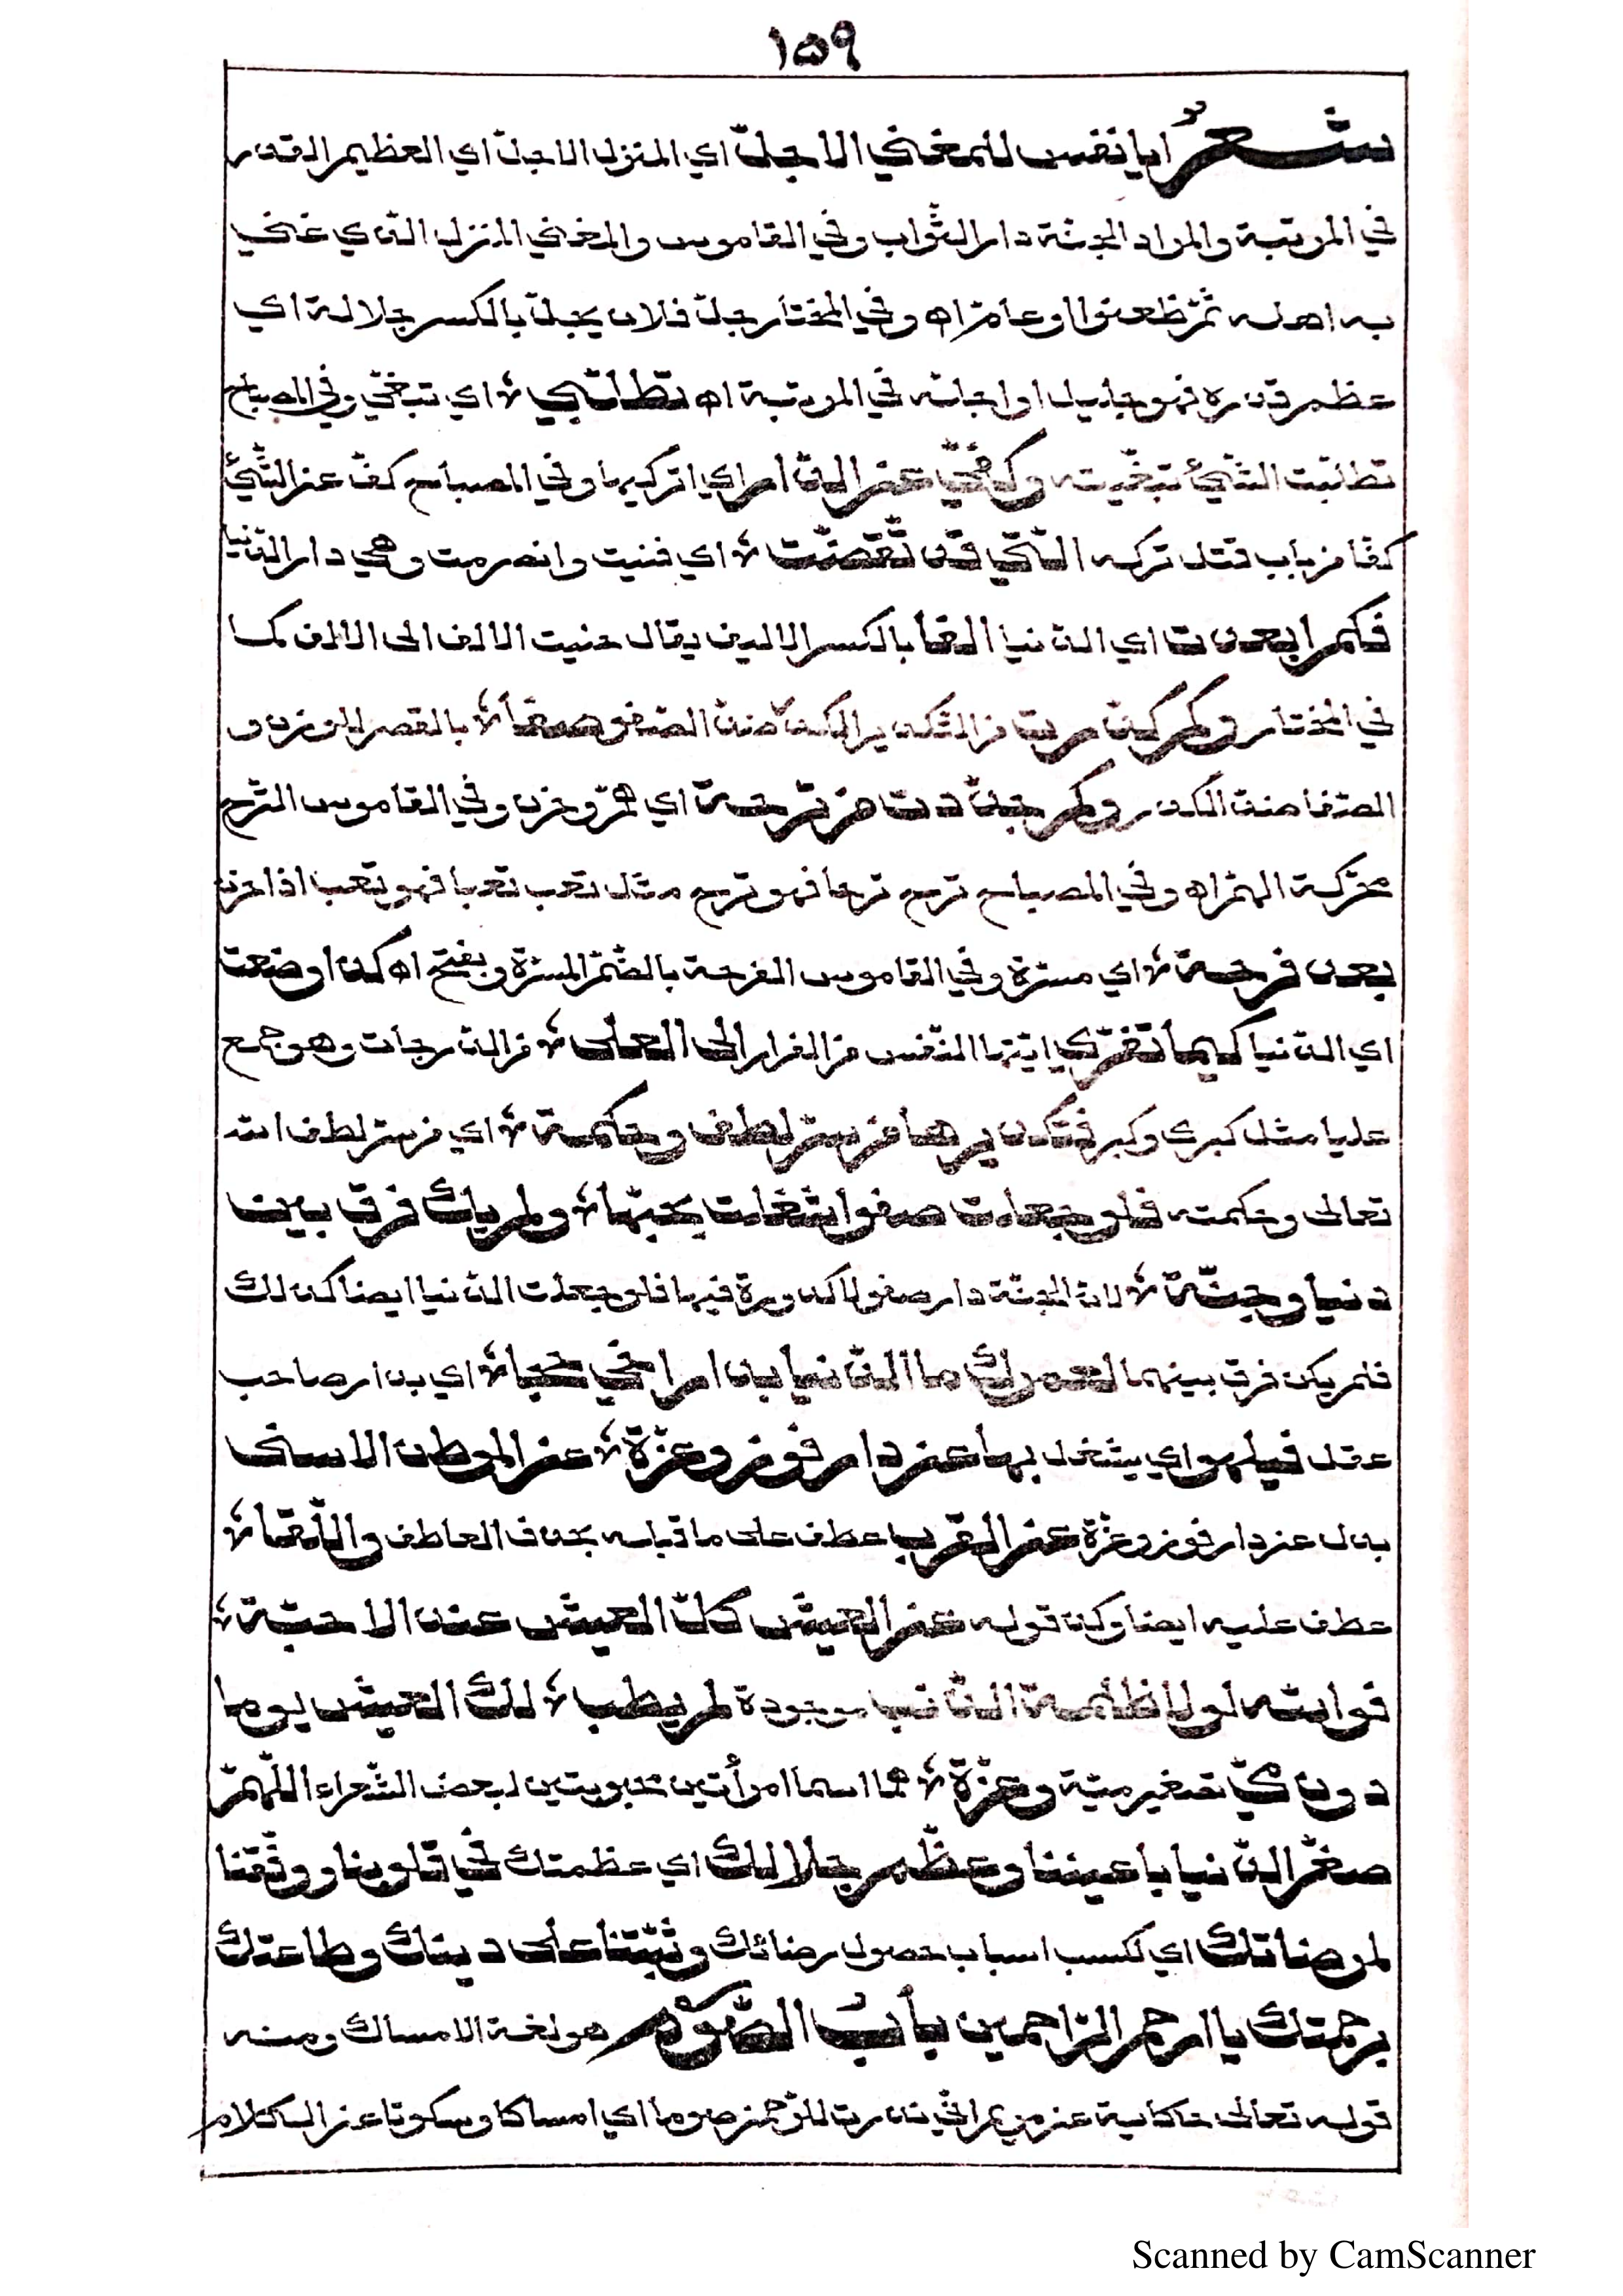 ١٥٩
شعرٌ ايا نفس للمغنى الاجلّ اي المنزل الاجلّ اي العظيم القدر
في المرتبة والمراد الجنّة دار الثواب وفي القاموس والمغنى المنزل الذي غنى
به اهله ثمّ ظعنوا او عامّ اه وفي المختار جلّ فلان يجلّ بالكسر جلالة اي
عظم قدره فهو جليل او اجلّه في المرتبة اه تطلّبي اي تبغّي وفي المصباح
تطلّبت الشّيئ تبغّيته وكفّي عن الدّار اي اتركيها وفي المصباح كفّ عن الشّيئ
كفّا من باب قتل تركه الّتي قد تقضّت اي فنيت وانصرمت وهي دار الدّنيا
فكم ابعدت اي الدّنيا الفا بالكسر الاليف يقال حنيت الالف الى الالف كما
في المختار وكم كدّرت من التّكدير الكدّ ضدّ الصّفو صفا بالقصر للوزن و
الصّفا ضدّ الكدر وكم جدّدت من ترحة اي همّ وحزن وفي القاموس التّرح
محرّكة الهمّ اه وفي المصباح ترح ترحا فهو ترح مثل تعب تعبا فهو تعب اذا حزن
بعد فرحة اي مسرّة وفي القاموس الفرحة بالضّمّ المسرّة وبفتح اه كذا وضعت
اي الدّنيا كيما تفرّي ايّتها النّفس من الفرار الى العلى من الدّرجات وهو جمع
عليا مثل كبرى وكبر فتكديرها من سرّ لطف وحكمة اي من سرّ لطف الله
تعالى وحكمته فلو جعلت صفوا شغلت بحبّها ولم يك فرق بين
دنيا وجنّة لانّ الجنّة دار صفو لا كدورة فيها فلو جعلت الدّنيا ايضا كذلك
فلم يكن فرق بينهما لعمرك ما الدّنيا بدار اخي حجا اي بدار صاحب
عقل فيلهو اي يشغل بها عن دار فوز وعزّة عن الموطن الاسنى
بدل عن دار فوز وعزّة عن القرب عطف على ما قبله بحذف العاطف واللّقا
عطف عليه ايضا وكذا قوله عن العيش كلّ العيش عند الاحبّة
فوالله لولا ظلمة الذّنب موجودة لم يطب لك العيش يوما
دون ميّ تصغير ميّة وعزّة هما اسما امرأتين محبوبتين لبعض الشّعراء اللّهمّ
صغّر الدّنيا باعيننا وعظّم جلالك اي عظمتك في قلوبنا ووفّقنا
لمرضاتك اي لكسب اسباب حصول رضائك وثبّتنا على دينك وطاعتك
برحمتك يا ارحم الرّاحمين بابُ الصّوم هو لغة الامساك ومنه
قوله تعالى حكاية عن مريم انّي نذرت للرّحمن صوما اي امساكا وسكوتا عن الكلام
Scanned by CamScanner